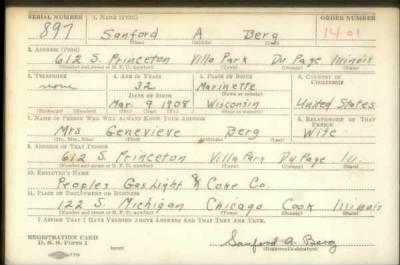 SERIAL NUMBER 1. NAME (Print) ORDER NUMBER
897 Sanford A Berg 1401
(First) (Middle) (Last)
2. ADDRESS (Print)
612 S. Princeton Villa Park Du Page Illinois
(Number and street or R. F. D. number) (Town) (County) (State)
3. TELEPHONE 4. AGE IN YEARS 5. PLACE OF BIRTH 6. COUNTRY OF CITIZENSHIP
none 32 Marinette
DATE OF BIRTH (Town or county)
Mar. 9 1908 Wisconsin United States
(Exchange) (Number) (Mo.) (Day) (Yr.) (State or country)
7. NAME OF PERSON WHO WILL ALWAYS KNOW YOUR ADDRESS 8. RELATIONSHIP OF THAT PERSON
Mrs Genevieve Berg Wife
(Mr., Mrs., Miss) (First) (Middle) (Last)
9. ADDRESS OF THAT PERSON
612 S. Princeton Villa Park Du Page Ill.
(Number and street or R. F. D. number) (Town) (County) (State)
10. EMPLOYER'S NAME
Peoples Gas Light & Coke Co.
11. PLACE OF EMPLOYMENT OR BUSINESS
122 S. Michigan Chicago Cook Illinois
(Number and street or R. F. D. number) (Town) (County) (State)
I AFFIRM THAT I HAVE VERIFIED ABOVE ANSWERS AND THAT THEY ARE TRUE.
REGISTRATION CARD
D. S. S. Form 1 (over) Sanford A. Berg
(Registrant's signature)